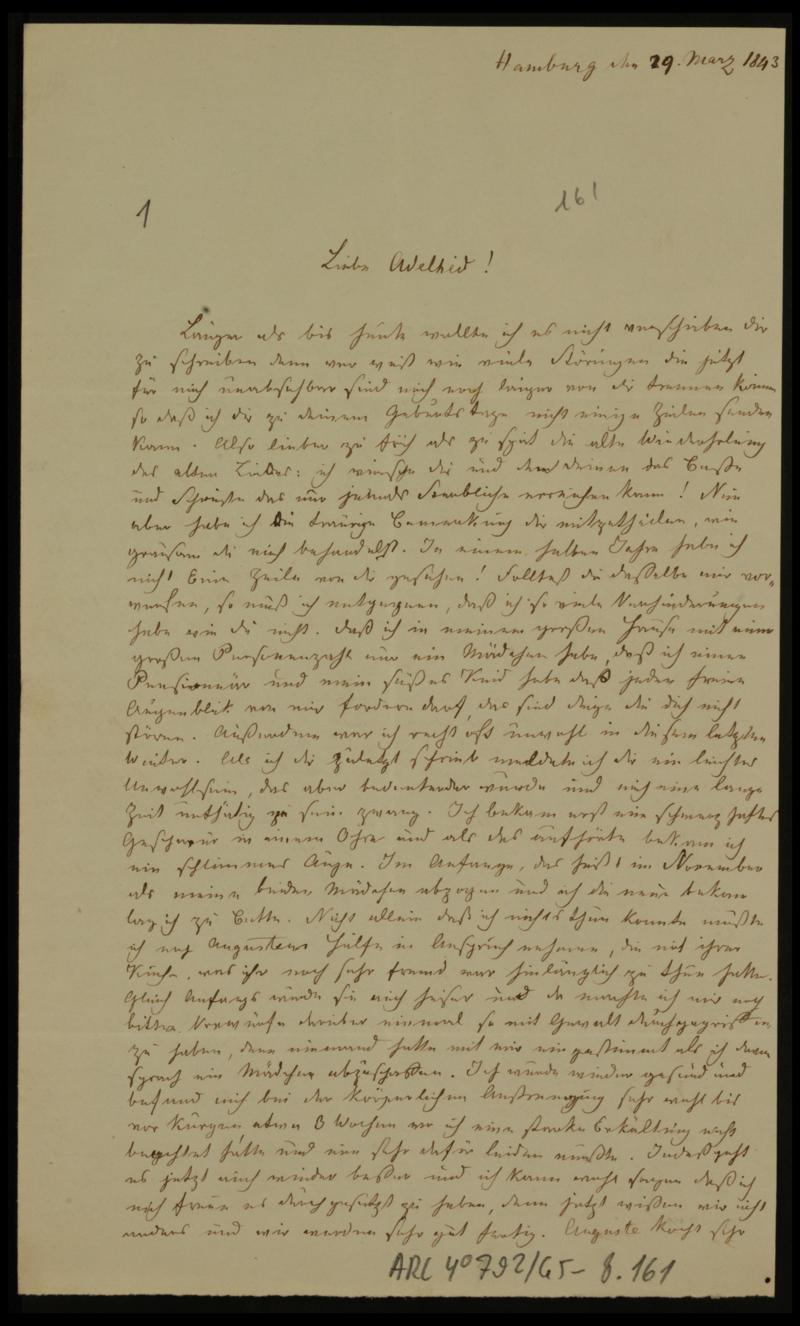 Hamburg den 29. März 1843
161
1
Liebe Adelheid!
Länger als bis heute wollte ich es nicht verschieben dir
zu schreiben denn wer weiß wie viele Störungen die jetzt
für mich unabsehbar sind mich noch länger von dir trennen können
so daß ich dir zu deinem Geburtstage nicht einige Zeilen senden
kann. Also lieber zu früh als zu spät die alte Wiederholung
des alten Liedes: ich wünsche dir und den deinen das Beste
und Schönste das nur jemals Sterbliche erreichen kann! Nun
aber habe ich die traurige Bemerkung dir mitzutheilen, wie
grausam du mich behandelst. In einem halben Jahre habe ich
nicht Eine Zeile von dir gesehen! Solltest du dasselbe mir vor-
werfen, so muß ich entgegnen, daß ich so viele Verhinderungen
habe wie du nicht. Daß ich in meinem großen Hause mit einer
großen Personenzahl nur ein Mädchen habe, daß ich einen
Pensionär und mein süßes Kind habe das jeden freien
Augenblick von mir fordern darf, das sind Dinge die dich nicht
stören. Außerdem war ich recht oft unwohl in diesem letzten
Winter. Als ich dir zuletzt schrieb meldete ich dir ein leichtes
Unwohlsein, das aber bedeutender wurde und mich eine lange
Zeit unthätig zu sein zwang. Ich bekam erst ein schmerzhaftes
Geschwür in einem Ohre und als das aufhörte bekam ich
ein schlimmes Auge. Im Anfange, das heißt im November
als meine beiden Mädchen abzogen und ich die neue bekam
lag ich zu Bette. Nicht allein daß ich nichts thun konnte mußte
ich noch Augustens Hülfe in Anspruch nehmen, die mit ihrer
Küche, was ihr noch sehr fremd war hinlänglich zu thun hatte.
Gleich Anfangs wurde sie auch heiser und da machte ich mir noch
bittre Vorwürfe darüber einmal so mit Gewalt durchgegriffen
zu haben, denn niemand hatte mit mir eingestimmt als ich davon
sprach ein Mädchen abzuschaffen. Ich wurde wieder gesund und
befand mich bei der körperlichen Anstrengung sehr wohl bis
vor kurzem etwa 3 Wochen wo ich eine starke Erkältung nicht
beachtet hatte und nun sehr dafür leiden mußte. Indeß geht
es jetzt auch wieder besser und ich kann wohl sagen daß ich
mich freue es durchgesetzt zu haben, denn jetzt wissen wir nicht
anders und wir werden sehr gut fertig. Auguste kocht sehr
ARC 4° 792/G5- 8.161